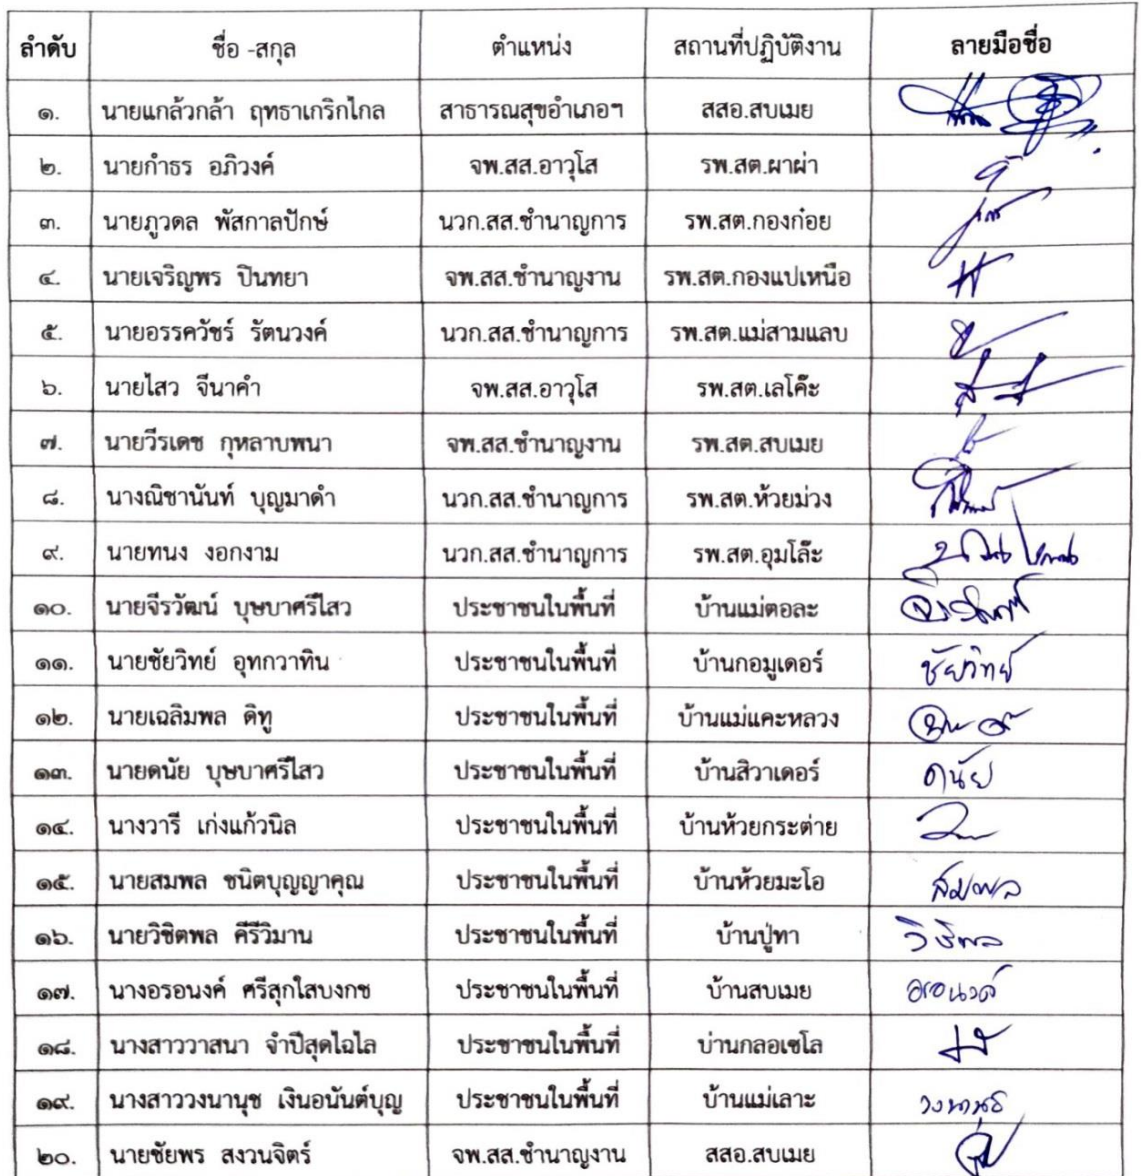 ลำดับ ชื่อ -สกุล ตำแหน่ง สถานที่ปฏิบัติงาน ลายมือชื่อ
๑. นายแกล้วกล้า ฤทธาเกริกไกล สาธารณสุขอำเภอฯ สสอ.สบเมย
๒. นายกำธร อภิวงค์ จพ.สส.อาวุโส รพ.สต.ผาผ่า
๓. นายภูวดล พัสกาลปักษ์ นวก.สส.ชำนาญการ รพ.สต.กองก๋อย
๔. นายเจริญพร ปินทยา จพ.สส.ชำนาญงาน รพ.สต.กองแปเหนือ
๕. นายอรรควัชร์ รัตนวงค์ นวก.สส.ชำนาญการ รพ.สต.แม่สามแลบ
๖. นายไสว จีนาคำ จพ.สส.อาวุโส รพ.สต.เลโค๊ะ
๗. นายวีรเดช กุหลาบพนา จพ.สส.ชำนาญงาน รพ.สต.สบเมย
๘. นางณิชานันท์ บุญมาดำ นวก.สส.ชำนาญการ รพ.สต.ห้วยม่วง
๙. นายทนง งอกงาม นวก.สส.ชำนาญการ รพ.สต.อุมโล๊ะ
๑๐. นายจีรวัฒน์ บุษบาศรีไสว ประชาชนในพื้นที่ บ้านแม่ตอละ
๑๑. นายชัยวิทย์ อุทกวาทิน ประชาชนในพื้นที่ บ้านกอมูเดอร์ ชัยวิทย์
๑๒. นายเฉลิมพล ดิทู ประชาชนในพื้นที่ บ้านแม่แคะหลวง
๑๓. นายดนัย บุษบาศรีไสว ประชาชนในพื้นที่ บ้านสิวาเดอร์ ดนัย
๑๔. นางวารี เก่งแก้วนิล ประชาชนในพื้นที่ บ้านห้วยกระต่าย
๑๕. นายสมพล ชนิตบุญญาคุณ ประชาชนในพื้นที่ บ้านห้วยมะโอ สมพล
๑๖. นายวิชิตพล คีรีวิมาน ประชาชนในพื้นที่ บ้านปู่ทา
๑๗. นางอรอนงค์ ศรีสุกใสบงกช ประชาชนในพื้นที่ บ้านสบเมย อรอนงค์
๑๘. นางสาววาสนา จำปีสุดไฉไล ประชาชนในพื้นที่ บ่านกลอเซโล
๑๙. นางสาววงนานุช เงินอนันต์บุญ ประชาชนในพื้นที่ บ้านแม่เลาะ วงนานุช
๒๐. นายชัยพร สงวนจิตร์ จพ.สส.ชำนาญงาน สสอ.สบเมย